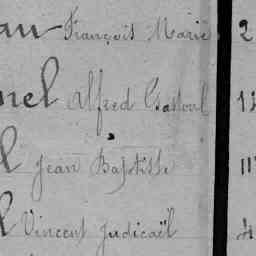 au François Marie 2
nel Alfred Gaston 12
l Jean Baptiste 11
l Vincent Judicaël 4